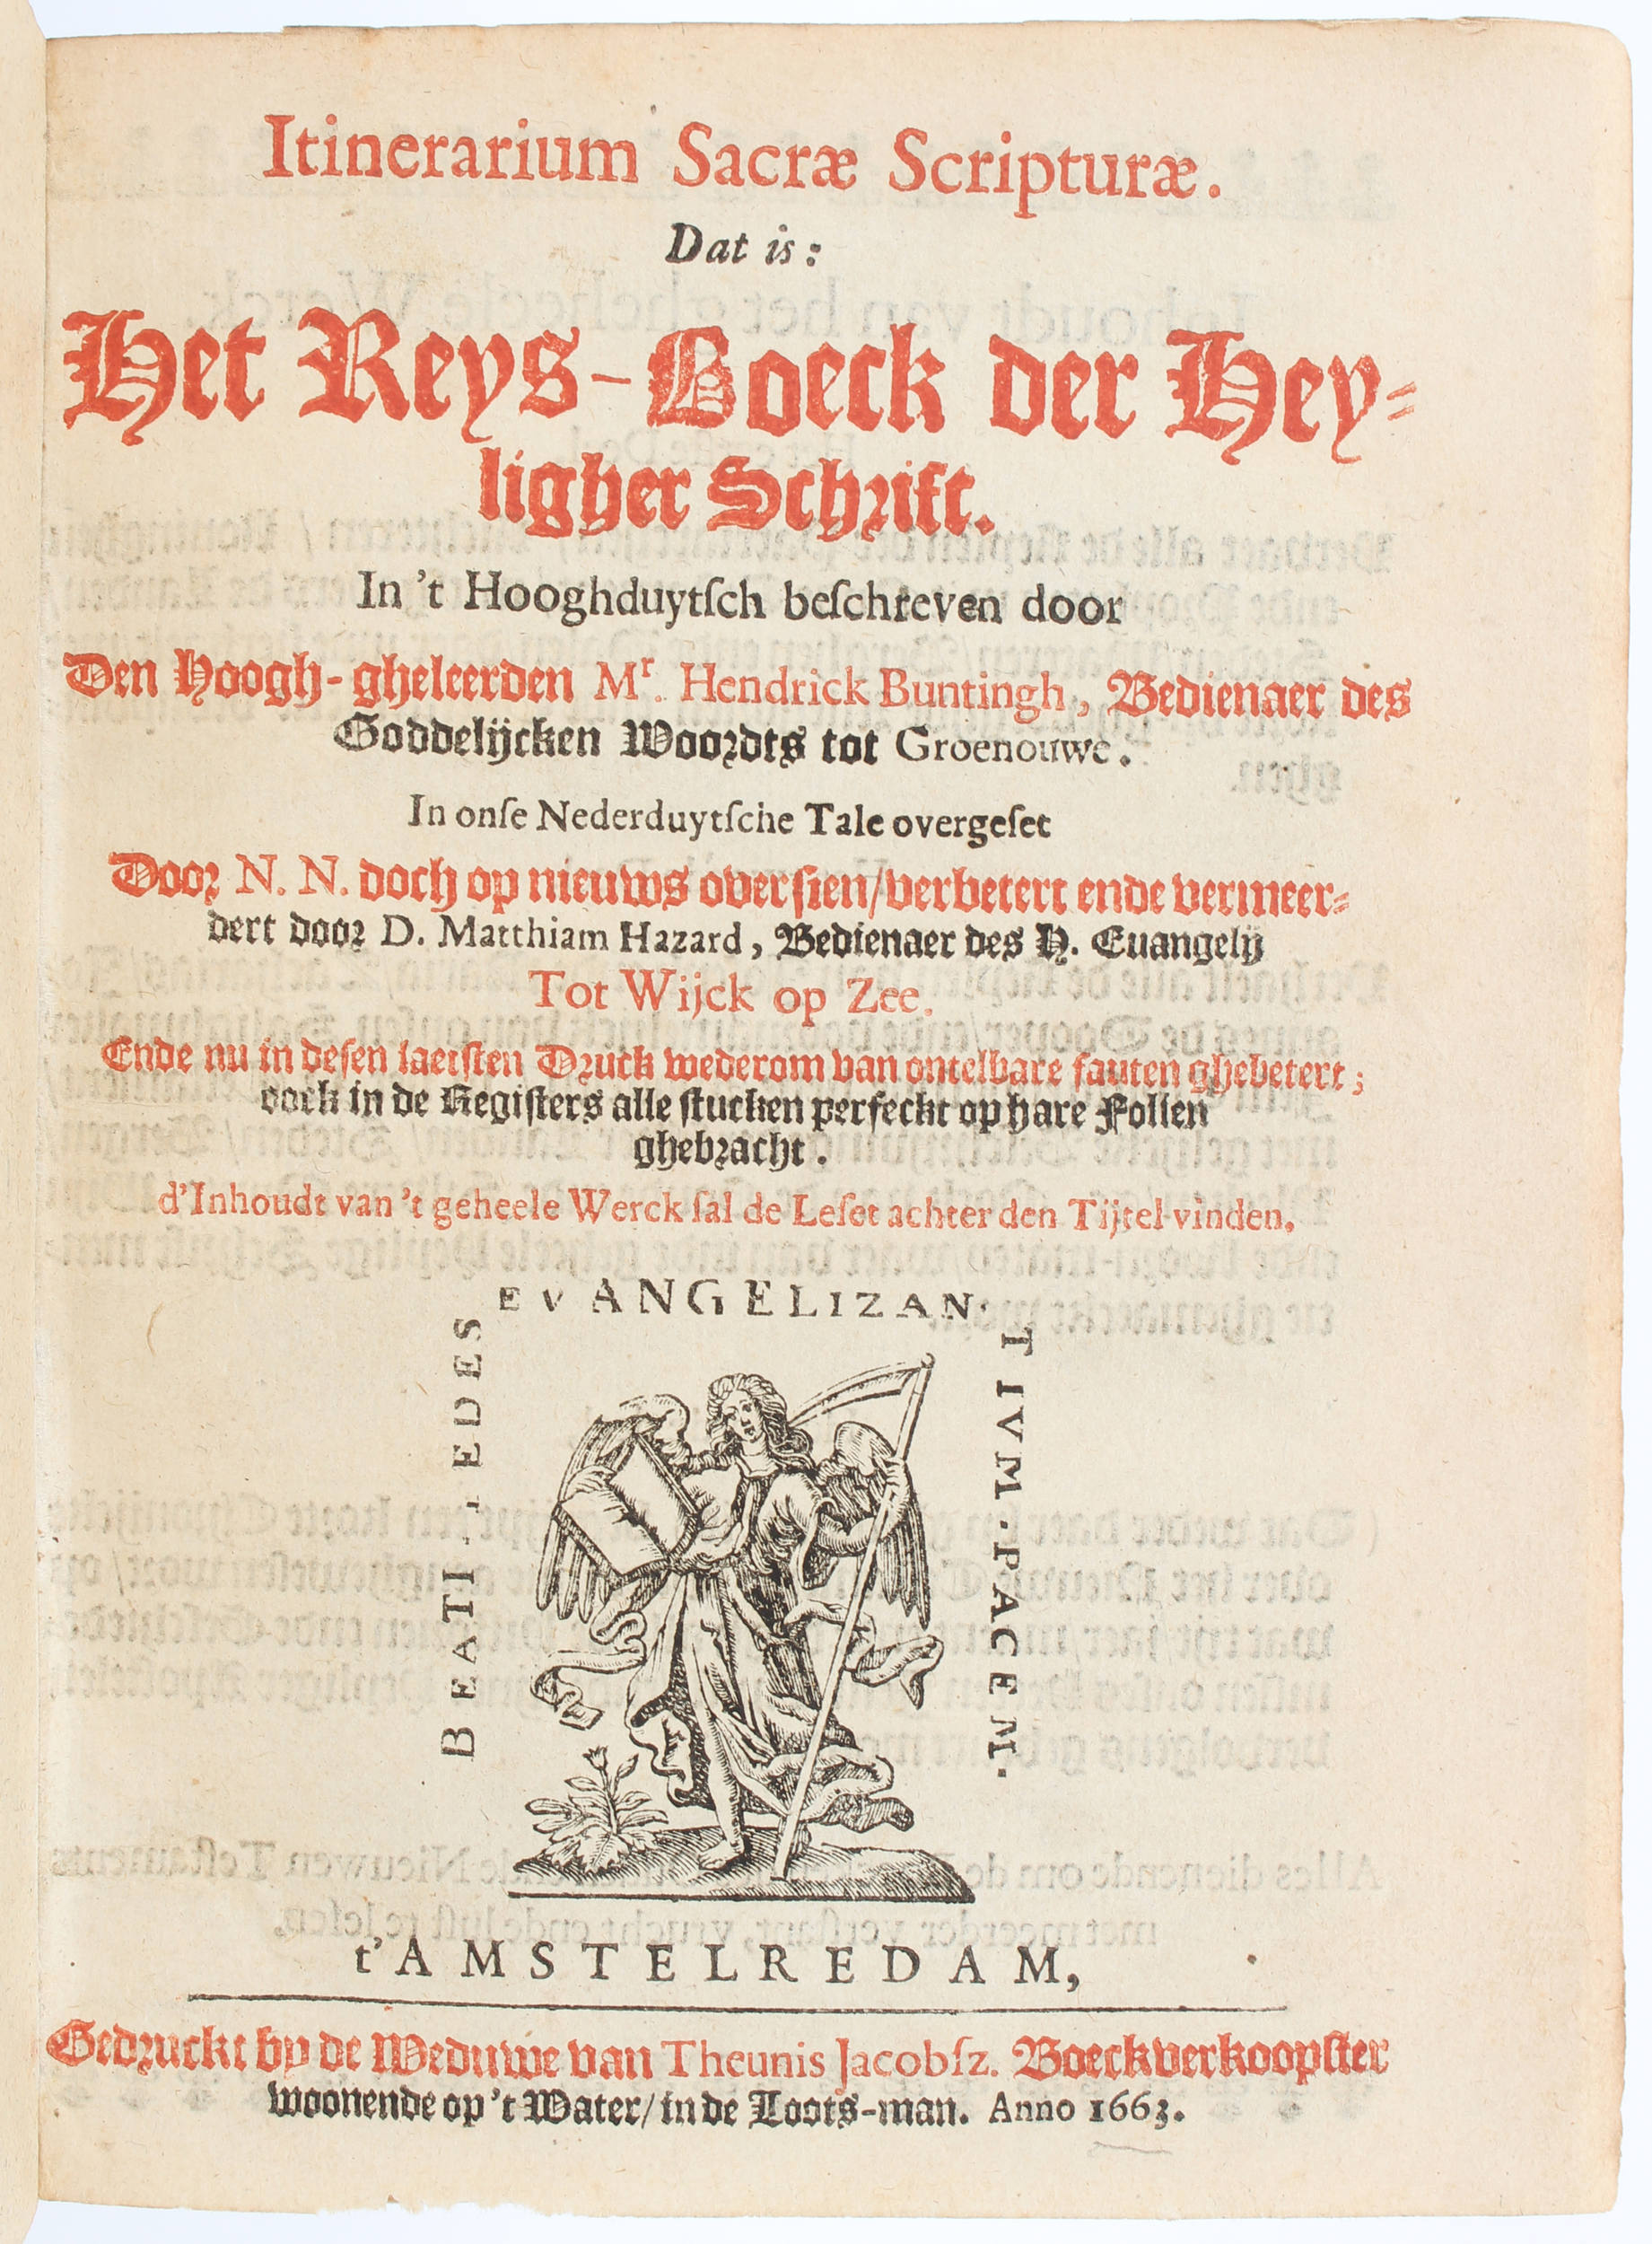 Itinerarium Sacræ Scripturæ.
Dat is:
Het Reys-Boeck der Hey-
ligher Schrift.
In 't Hooghduytſch beſchreven door
Den Hoogh-gheleerden Mr. Hendrick Buntingh, Bedienaer des
Goddelijcken Woordts tot Groenouwe.
In onſe Nederduytſche Tale overgeſet
Door N. N. doch op nieuws overſien/verbetert ende vermeer-
dert door D. Matthiam Hazard, Bedienaer des H. Euangelij
Tot Wijck op Zee.
Ende nu in deſen laetſten Druck wederom van ontelbare fauten ghebetert;
oock in de Regiſters alle ſtucken perfeckt op hare Folien
ghebracht.
d'Inhoudt van 't geheele Werck ſal de Leſer achter den Tijtel vinden.
BEATI EDES
EVANGELIZAN-
TIVM.PACEM.
t'AMSTELREDAM,
Gedruckt by de Weduwe van Theunis Jacobſz. Boeckverkoopſter
woonende op 't Water/ in de Loots-man. Anno 1663.